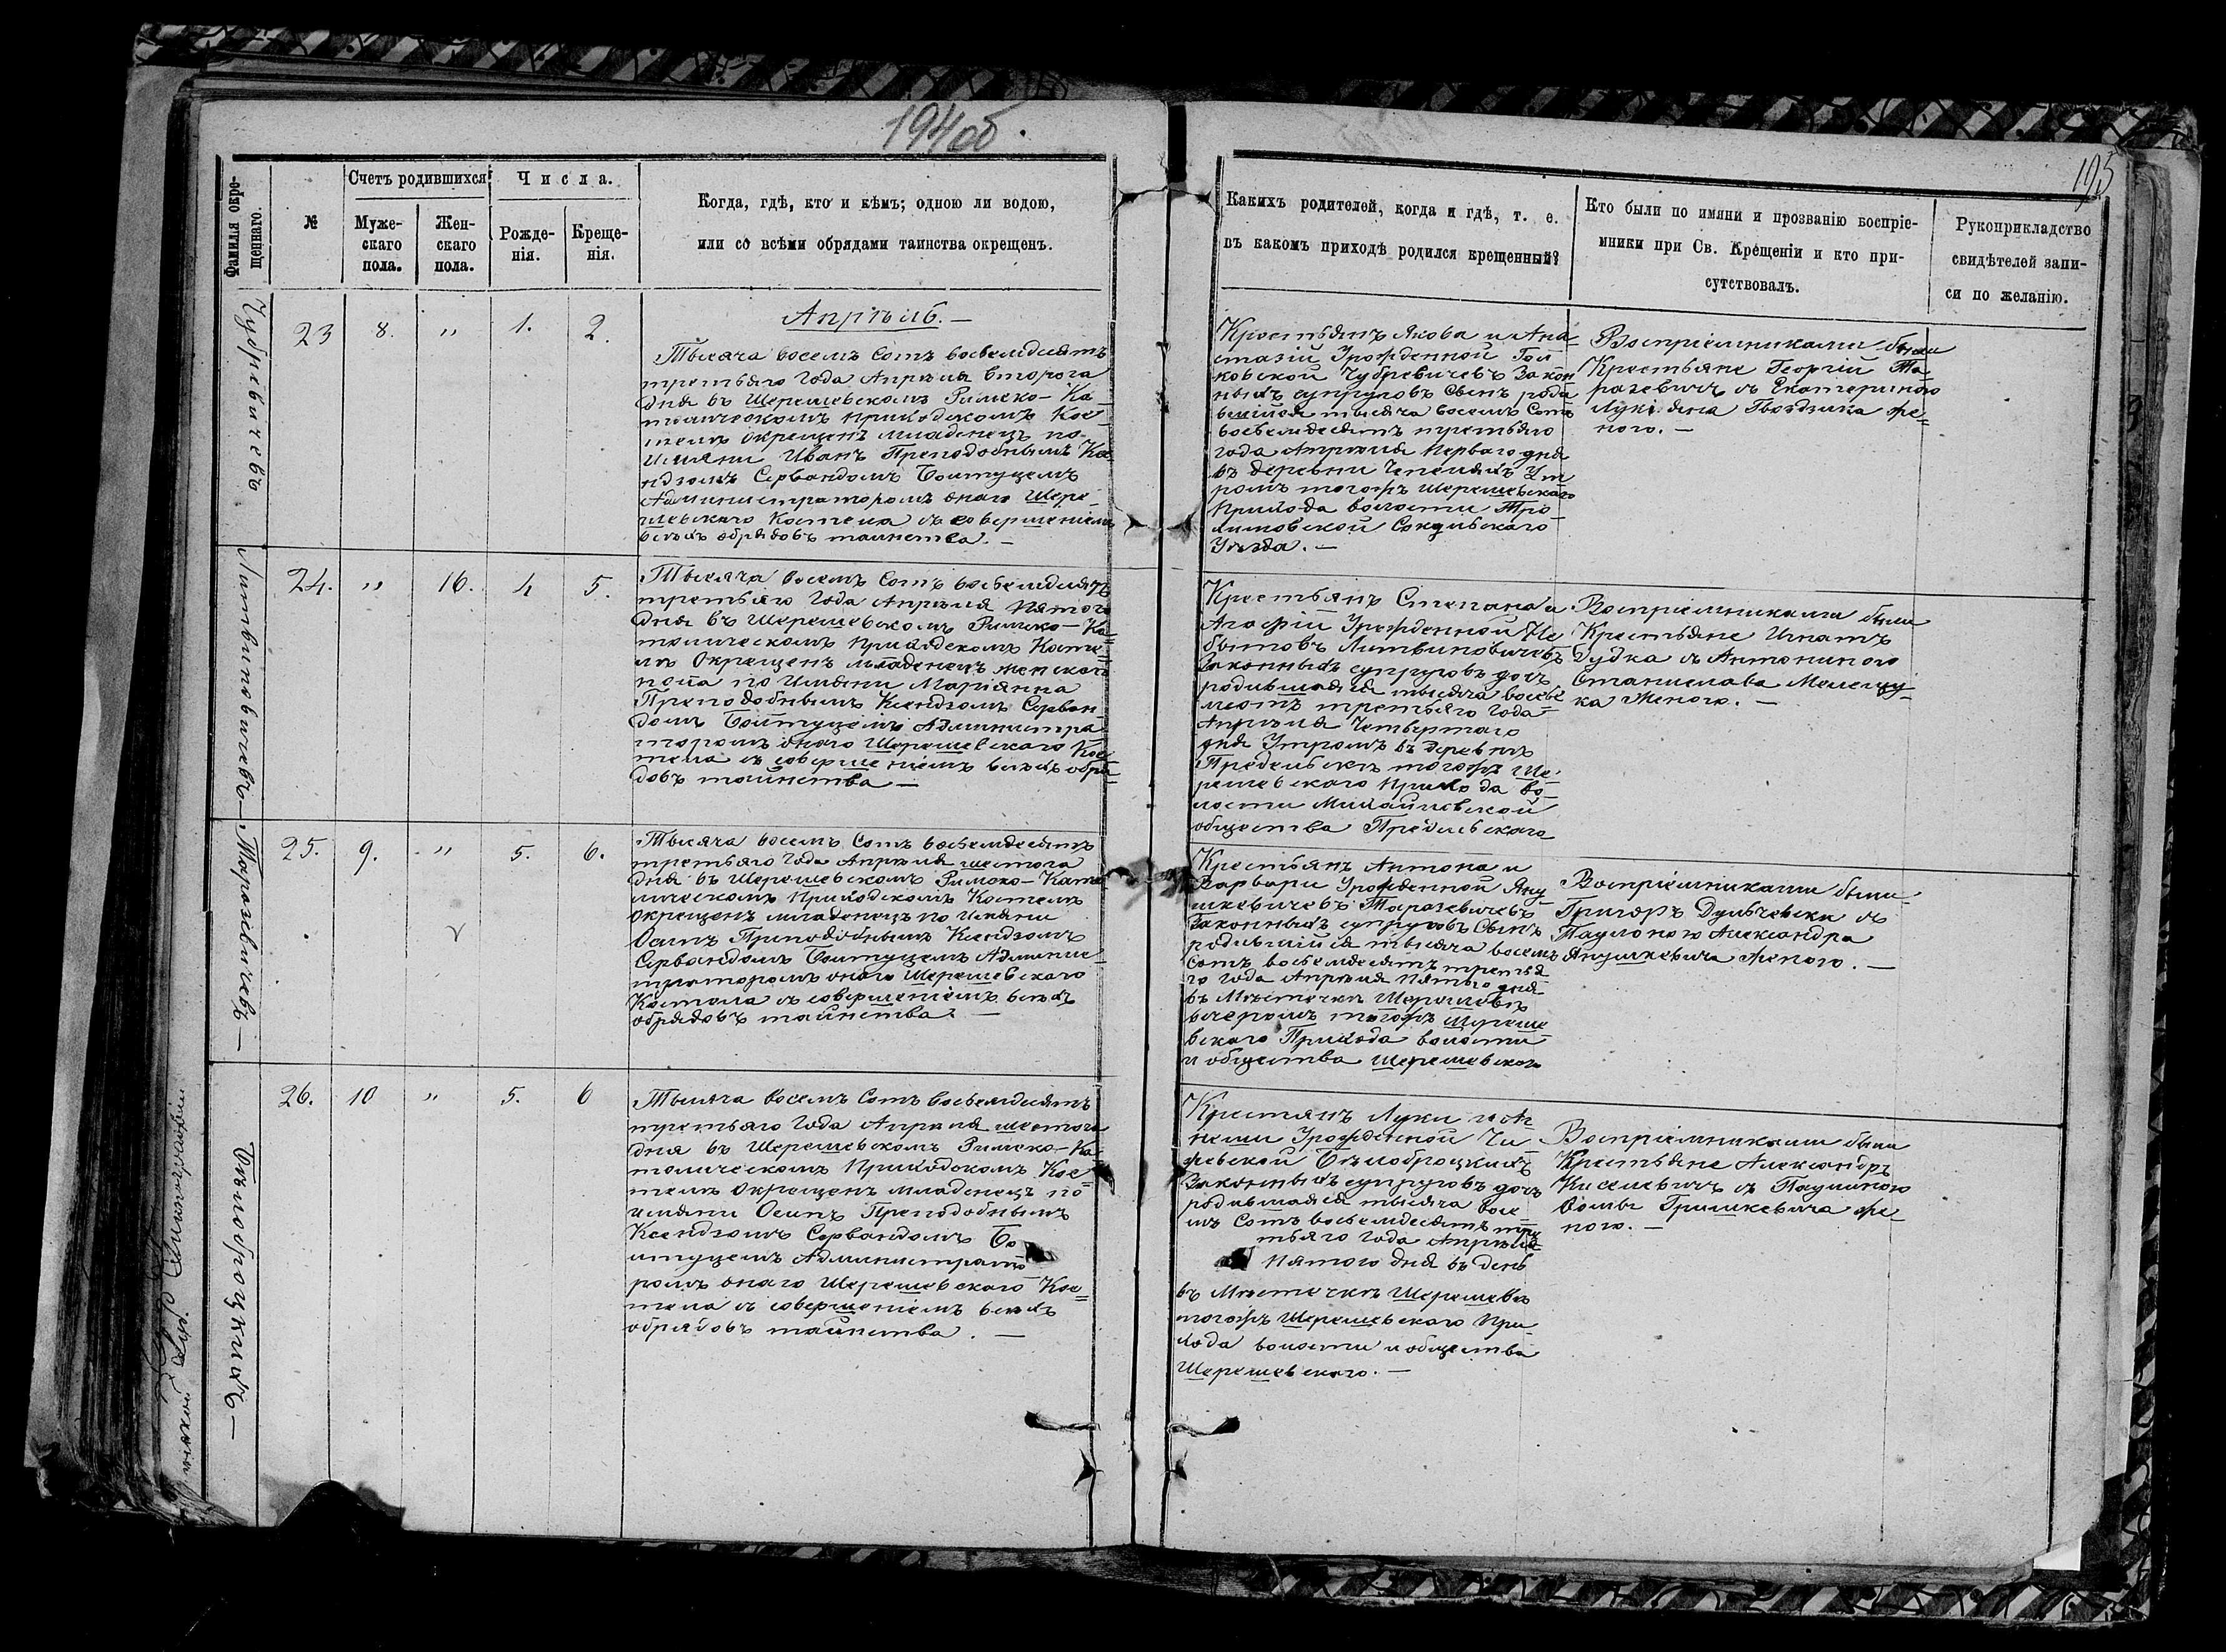 194об.
195
Фамилія окре-
щеннаго.
№
Счетъ родившихся
Муже-
скаго
пола.
Жен-
скаго
пола.
Числа.
Рожде-
нія.
Креще-
нія.
Когда, гдѣ, кто и кѣмъ; одною ли водою,
или со всѣми обрядами таинства окрещенъ.
Каких​ъ родителей, когда и гдѣ, т. е.
въ какомъ приходѣ родился крещенный?
Кто были по имяни и прозванію воспріе-
мники при Св. Крещеніи и кто при-
сутствовалъ.
Рукоприкладство
свидѣтелей запи-
си по желанію.
Чубревичевъ
23
8.
"
1.
2.
Апрѣль. —
Тысяча восемъ сотъ восьмдесятъ
третьяго года Апрѣля второга
дня въ Шерешевскомъ Римско-Ка-
толическомъ приходскомъ Кос-
телѣ окрещенъ младенецъ по-
имяни Иванъ Преподобнымъ Ксе-
ндзомъ Сервандомъ Болтуцемъ
Администраторомъ онаго Шере-
шевскаго Костела съ совершеніемъ
всѣхъ обрядовъ таинства. —
Крестьянъ Якова и Ана-
стазіи Урожденной Гой
ковской Чубревичевъ Закон
ныхъ супруговъ сынъ роди
вшійся тысяча восемъ Сотъ
восьмдесятъ третьяго
года Апрѣля перваго дня
въ деревни Чепеляхъ Ут
ромъ тогожъ Шерешевскаго
прихода волости
Уѣзда. —
Воспріемниками были
Крестьяне Георгій Та-
разевичъ съ Екатериною
Лукіяна Гвоздзика же-
ною. —
Литвиновичевъ —
24.
"
16.
4
5.
Тысяча восемъ Сотъ восьмдесятъ
третьяго года Апрѣля пятого
дня въ Шерешевскомъ Римско-Ка-
толическомъ приходскомъ Косте-
лѣ окрещенъ младенецъ женскаго
пола по имяни Маріянна
Преподобнымъ Ксендзомъ Серван-
домъ Болтуцемъ Администра
торомъ онаго Шерешевскаго Кос
тела съ совершеніемъ всѣхъ обря-
довъ таинства —
Крестьянъ Степана и
Агафіи Урожденной Не
бытовъ Литвиновичевъ
Законныхъ супруговъ дочь
родившаяся тысяча восемь
третьяго года
Апрѣля Четвертаго
дня Утромъ въ деревнѣ
тогожъ Ше-
решевскаго прихода во-
лости
общества
Воспріемниками были
Крестьяне Игнатъ
Дудка съ Антониною
Станислава
ка Женою. —
Таразевичевъ —
25.
9.
"
5.
6.
Тысяча восемъ Сотъ восьмдесятъ
третьяго года Апрѣля шестога
дня въ Шерешевскомъ Римско-Като
лическомъ приходскомъ Костелѣ
окрещенъ младенецъ по имяни
Осипъ Преподобнымъ Ксендзомъ
Сервандомъ Болтуцемъ Админис-
траторомъ онаго Шерешевскаго
Костела съ совершеніемъ всѣхъ
обрядовъ таинства —
Крестьянъ Антона и
Варвары Урожденной Яну
шкевичевъ Таразевичевъ
Законныхъ супруговъ Сынъ
родившійся тысяча восемъ
Сотъ восьмдесятъ третья
го года Апрѣля пятаго дня
въ Мѣстечкѣ Шерешевѣ
вечеромъ тогожъ Шереше-
вскаго Прихода волости
и общества Шерешевского
Воспріемниками были
Григоръ Дульчевски съ
Паулоною Александра
Янушкевича женою. —
Бѣлоброцкихъ —
26.
10
"
5.
6
Тысяча восемъ Сотъ восьмдесятъ
третьяго года Апрѣля шестога
дня въ Шерешевскомъ Римско-Ка-
толическомъ приходскомъ Кос-
телѣ окрещенъ младенецъ по
имяни Осипъ Преподобнымъ
Ксендзомъ Сервандомъ Бо
лтуцемъ Администрато
ромъ онаго Шерешевскаго Кос-
тела съ совершеніемъ всѣхъ
обрядовъ таинства. —
Крестянъ Луки и Аг-
неши Урожденной Чи
жевской Бѣлоброцкихъ
Законныхъ супруговъ дочь
родившаяся тысяча восе-
мъ Сотъ восьмдесятъ тре
тьяго года Апрѣля
пятого дня въ день
въ Мѣстечкѣ Шерешевѣ
тогожъ Шерешевскаго При-
хода волости и общества
Шерешевского. —
Воспріемниками были
Крестьяне Александръ
Киселевичъ съ Паулиною
Фомы Гришкевича же-
ною. —